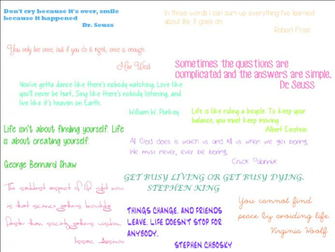 Don't cry because it's over, smile
because it happened
Dr. Seuss
In three words I can sum up everything I've learned
about life: it goes on.
Robert Frost
You only live once, but if you do it right, once is enough.
Mae West
sometimes the questions are
complicated and the answers are simple.
Dr. Seuss
You've gotta dance like there's nobody watching, Love like
you'll never be hurt, Sing like there's nobody listening, and
live like it's heaven on Earth.
William W. Purkey
Life is like riding a bicycle. To keep your
balance, you must keep moving.
Albert Einstein
Life isn't about finding yourself. Life is
about creating yourself.
George Bernard Shaw
All God does is watch us and kill us when we get boring.
We must never, ever be boring.
Chuck Palahniuk
GET BUSY LIVING OR GET BUSY DYING.
STEPHEN KING
The saddest aspect of life right now
is that science gathers knowledge
faster than society gathers wisdom.
Isaac Asimov
THINGS CHANGE. AND FRIENDS
LEAVE. LIFE DOESN'T STOP FOR
ANYBODY.
STEPHEN CHBOSKY
You cannot find
peace by avoiding life.
Virginia Woolf